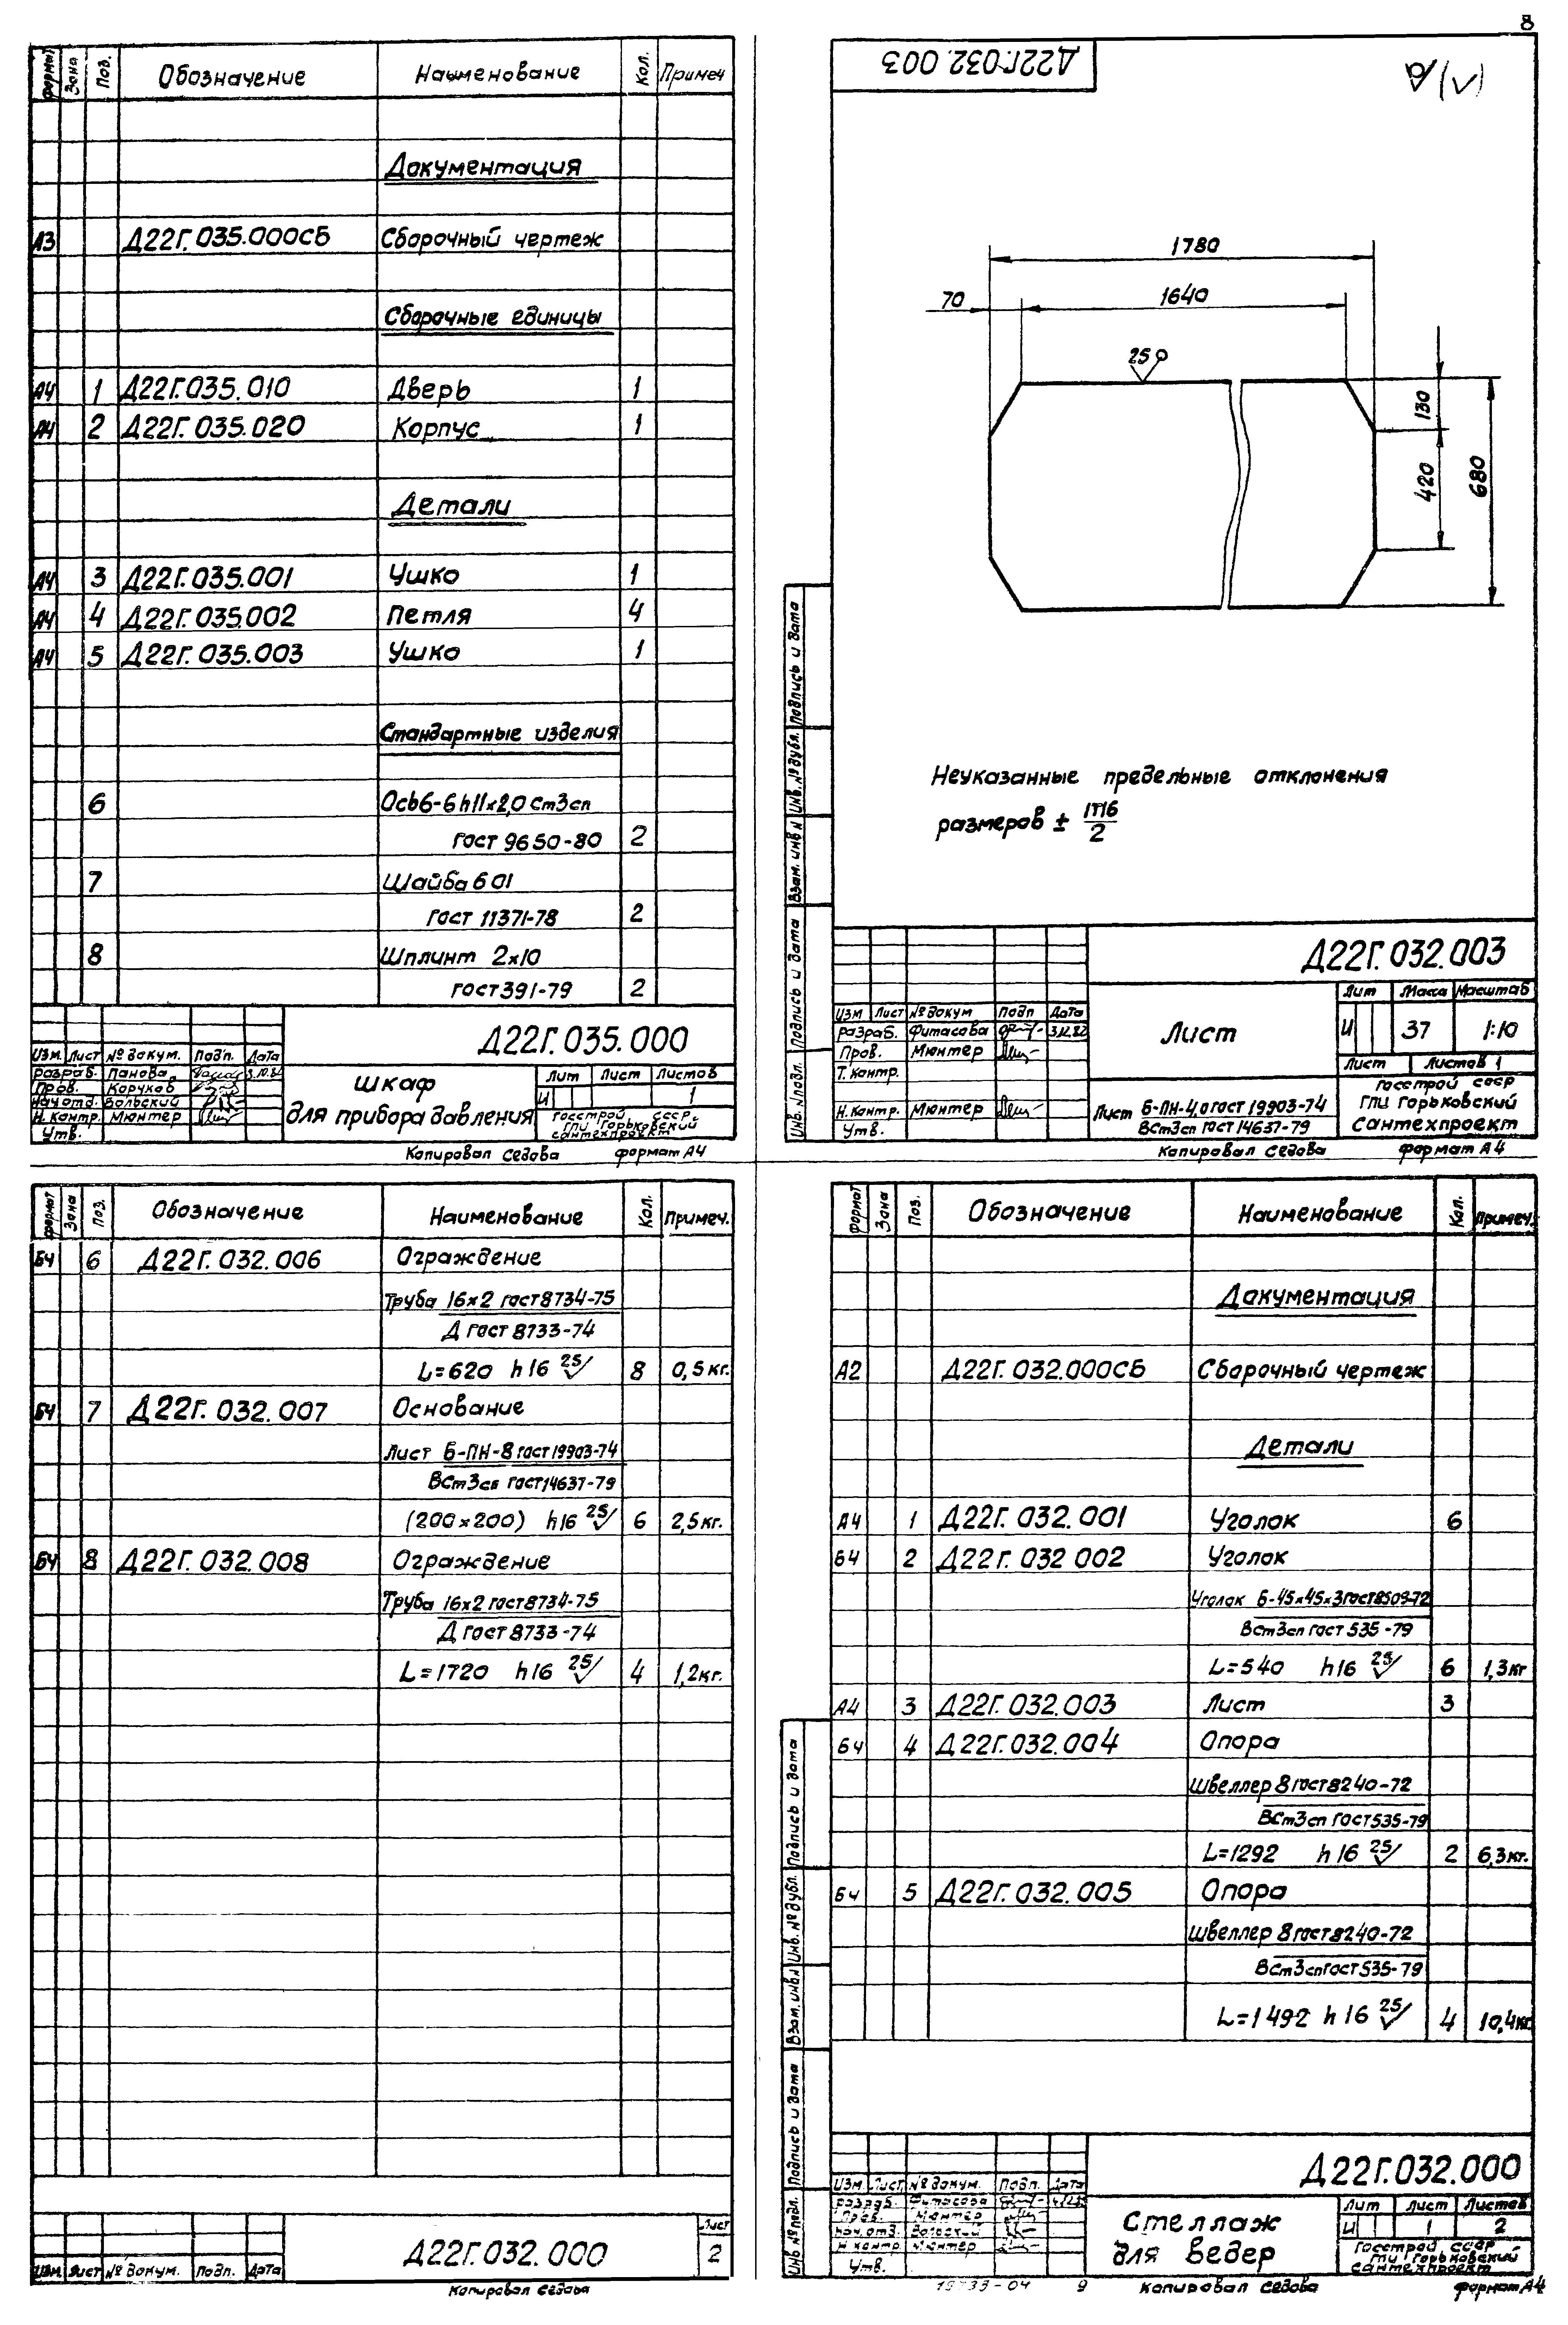 8
Формат Зона Поз. Обозначение Наименование Кол. Примеч
Документация
А3 Д22Г.035.000СБ Сборочный чертеж
Сборочные единицы
А4 1 Д22Г.035.010 Дверь 1
А4 2 Д22Г.035.020 Корпус 1
Детали
А4 3 Д22Г.035.001 Ушко 1
А4 4 Д22Г.035.002 Петля 4
А4 5 Д22Г.035.003 Ушко 1
Стандартные изделия
6 Ось6-6h11×2,0 Ст3сп
гост 9650-80 2
7 Шайба 6 01
гост 11371-78 2
8 Шплинт 2×10
гост 391-79 2
Д22Г.035.000
Изм. Лист № докум. Подп. Дата
Разраб. Панова
Пров. Коруков
Нач.отд. Вольский
Н.контр. Мюнтер
Утв.
Шкаф
для прибора давления
Лит Лист Листов
И 1
Госстрой СССР
ГПИ Горьковский
сантехпроект
Копировал Седова формат А4
Д22Г.032.003
(√)
1780
70 1640
25
130
420
680
Неуказанные предельные отклонения
размеров ± IT16/2
Подпись и дата
Инв. № дубл.
Взам. инв. №
Подпись и дата
Инв. № подл.
Д22Г.032.003
Изм Лист № докум Подп Дата
Разраб. Фитасова 3.12.82
Пров. Мюнтер
Т.контр.
Н.контр. Мюнтер
Утв.
Лист
Лит Масса Масштаб
И 37 1:10
Лист Листов 1
Лист Б-ПН-4,0 гост 19903-74
ВСт3сп гост 14637-79
Госстрой СССР
ГПИ Горьковский
Сантехпроект
Копировал Седова формат А4
Формат Зона Поз. Обозначение Наименование Кол. Примеч.
БЧ 6 Д22Г.032.006 Ограждение
Труба 16×2 гост 8734-75
Д гост 8733-74
L=620 h16 25 8 0,5 кг.
БЧ 7 Д22Г.032.007 Основание
Лист Б-ПН-8 гост 19903-74
ВСт3сп гост 14637-79
(200×200) h16 25 6 2,5 кг.
БЧ 8 Д22Г.032.008 Ограждение
Труба 16×2 гост 8734-75
Д гост 8733-74
L=1720 h16 25 4 1,2 кг.
Изм Лист № докум. Подп. Дата
Д22Г.032.000
Лист
2
Копировал Седова
Формат Зона Поз. Обозначение Наименование Кол. Примеч.
Документация
А2 Д22Г.032.000СБ Сборочный чертеж
Детали
А4 1 Д22Г.032.001 Уголок 6
БЧ 2 Д22Г.032 002 Уголок
Уголок Б-45×45×3 гост 8509-72
ВСт3сп гост 535-79
L=540 h16 25 6 1,3 кг
А4 3 Д22Г.032.003 Лист 3
БЧ 4 Д22Г.032.004 Опора
Швеллер 8 гост 8240-72
ВСт3сп гост 535-79
L=1292 h16 25 2 6,3 кг.
БЧ 5 Д22Г.032.005 Опора
Швеллер 8 гост 8240-72
ВСт3сп гост 535-79
L=1492 h16 25 4 10,4 кг
Подпись и дата
Инв. № дубл.
Взам. инв. №
Подпись и дата
Инв № подл.
Д22Г.032.000
Изм. Лист № докум. Подп. Дата
Разраб. Фитасова
Пров. Мюнтер
Нач.отд. Вольский
Н контр Мюнтер
Утв.
Стеллаж
для ведер
Лит Лист Листов
И 1 2
Госстрой СССР
ГПИ Горьковский
сантехпроект
9 Копировал Седова формат А4